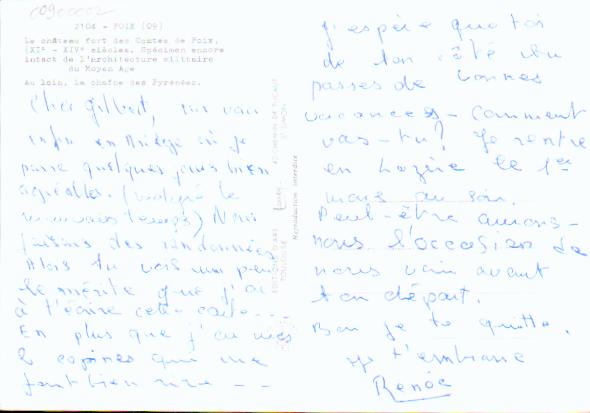 00900002
2104 - FOIX (09)
Le château fort des Comtes de Foix,
(XIe - XIVe siècles. Spécimen encore
intact de l'architecture militaire
du Moyen Age
Au loin, la chaîne des Pyrénées.
Cher Gilbert,
en Ariège où je
passe quelques jours bien
agréables. (malgré le
mauvais temps) Nous
faisons des randonnées
Alors tu vois un peu
le mérite que j'ai
à t'écrire cette carte....
En plus que j'ai mes
2 copines qui me
font bien rire - -
Reproduction interdite
J'espère que toi
de ton côté tu
passes de bonnes
vacances - Comment
vas-tu? Je rentre
en Lozère le 1er
mars au soir.
Peut-être aurons-
nous l'occasion de
nous voir avant
ton départ.
Bon je te quitte.
Je t'embrasse
Renée